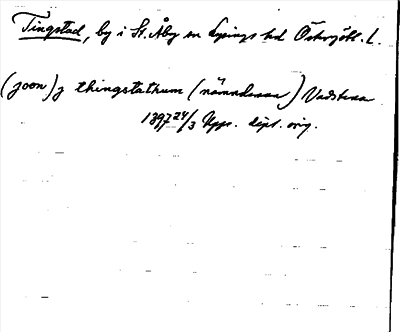 Tingstad, by i St. Åby sn Lysings hd Östergötl. l.
(joon) j thingstathum (nämndeman) Vadstena
1397 24/3 Upps. dipl. orig.